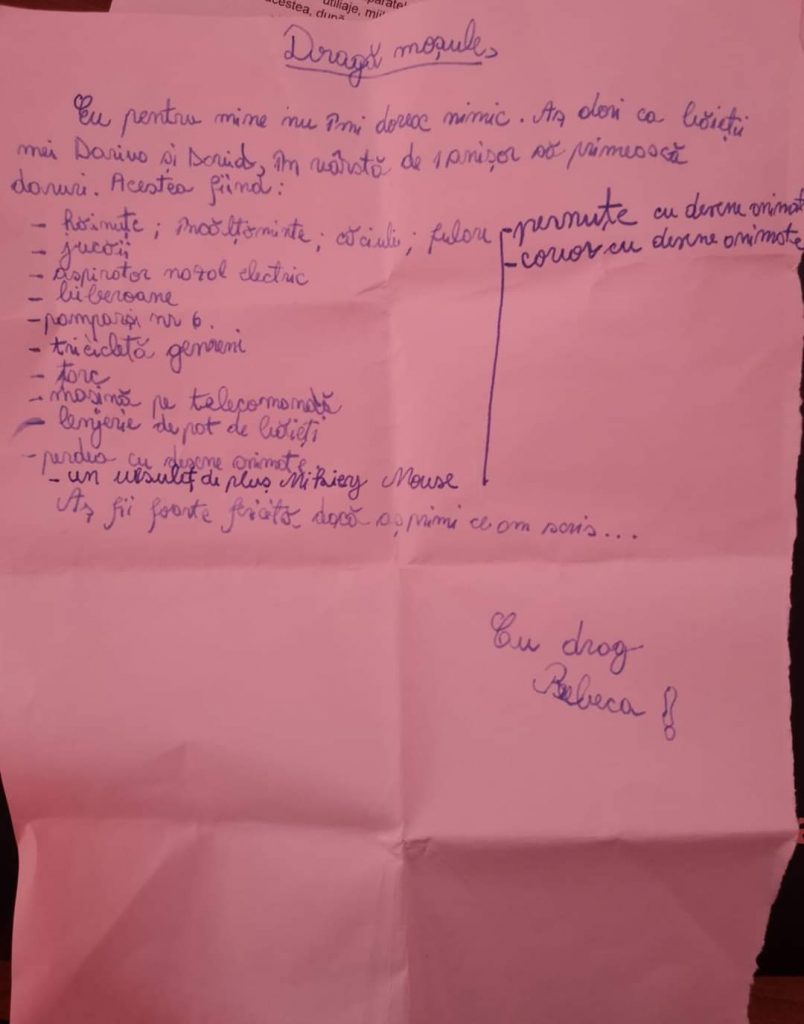 parate
acestea, după utilaje, mij
Dragă moșule,
Eu pentru mine nu îmi doresc nimic. Aș dori ca băieții
mei Darius și David, în vârstă de 1 anișor să primească
daruri. Acestea fiind:
- hăinuțe; încălțăminte; căciuli; fulare
- jucării
- aspirator nazal electric
- biberoane
- pamparși nr 6.
- tricicletă gemeni
- țarc
- mașină pe telecomandă
- lenjerie de pat de băieți
- perdea cu desene animate
- un ursuleț de pluș Mikiey Mouse
- pernuțe cu desene animate
- covor cu desene animate
Aș fii foarte fericită dacă aș primi ce am scris...
Cu drag
Rebeca!